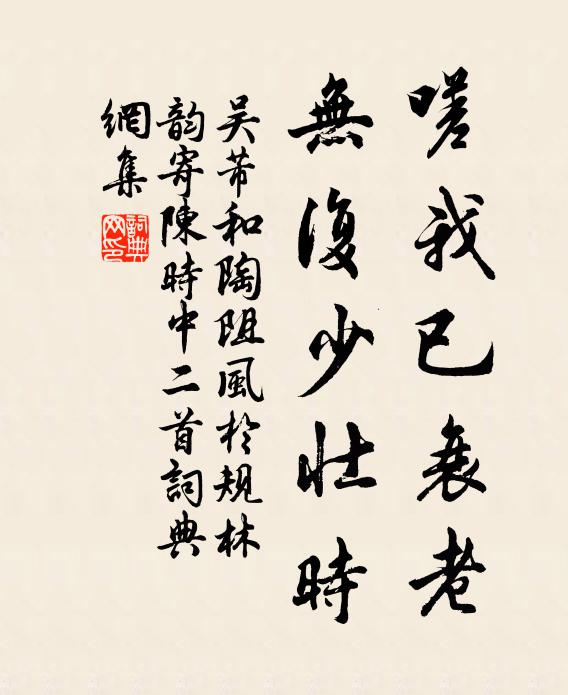 嗟我已衰老
無復少壯時
吴芾和陶阻風於規林
韵寄陳時中二首詞典
網集
詞典网印